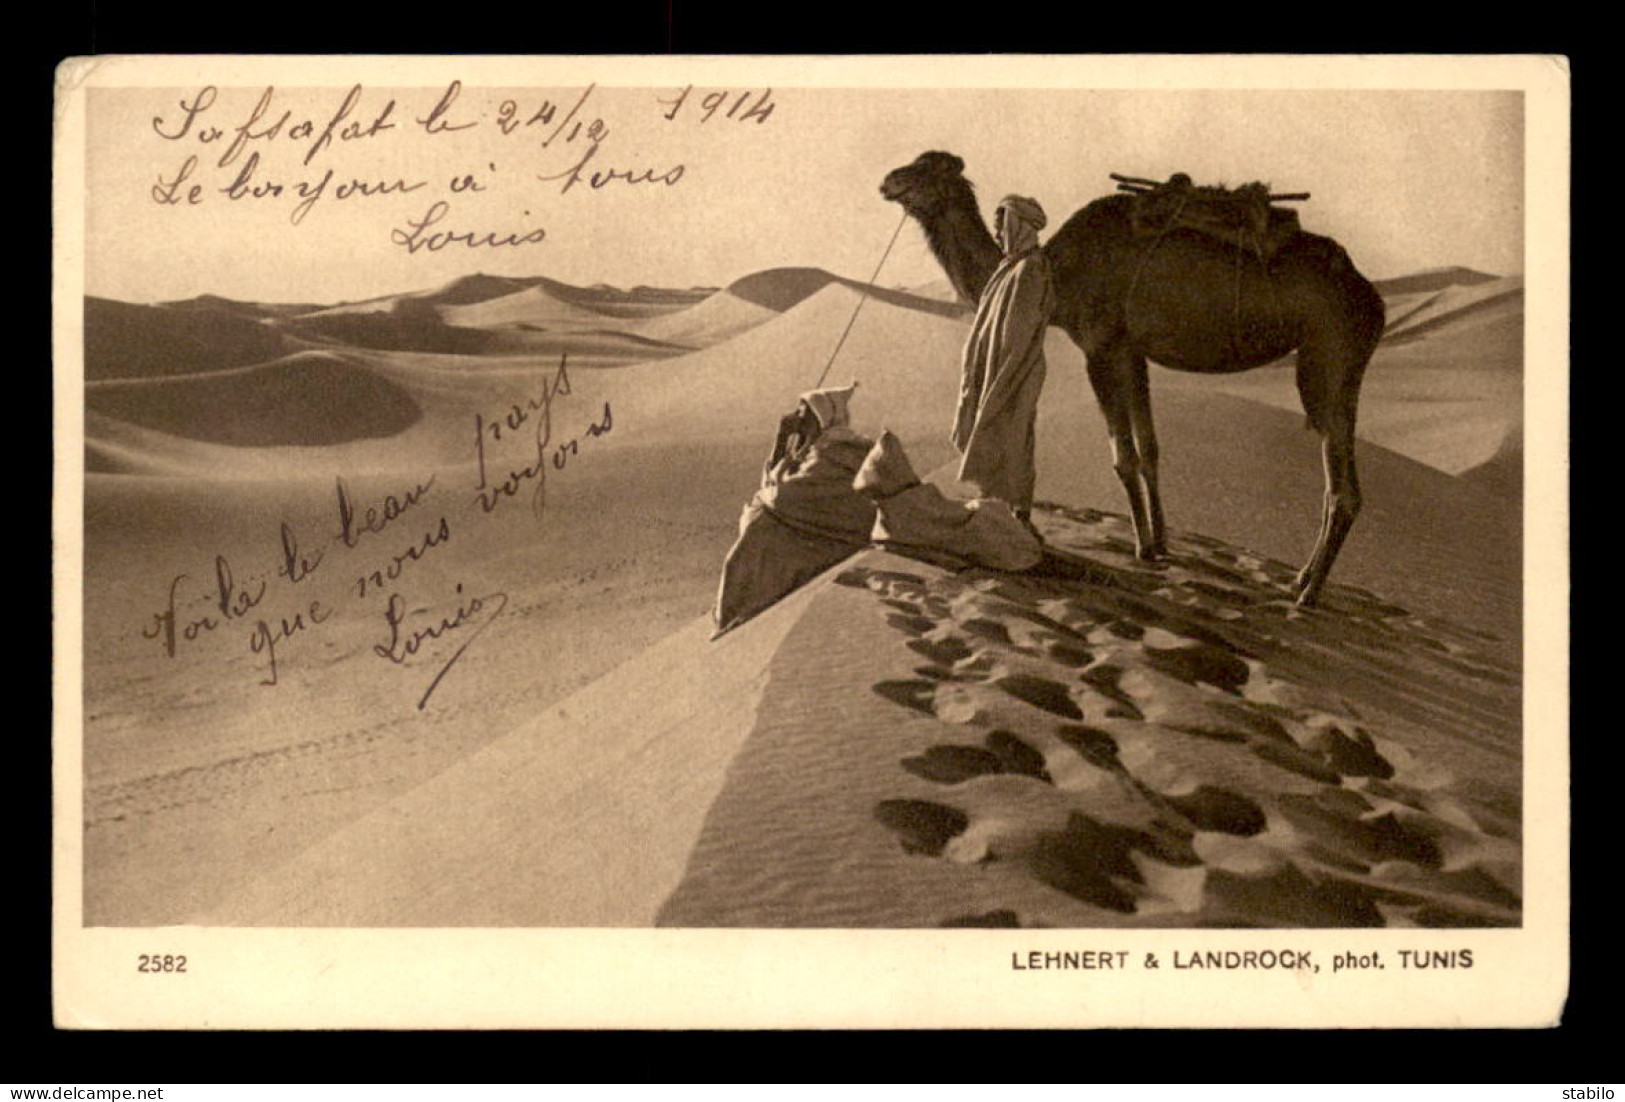 Safsafat le 24/12 1914
Le bonjour à tous
Louis
Voila le beau pays
que nous voyons
Louis
2582
LEHNERT & LANDROCK, phot. TUNIS
delcampe.net
stabilo